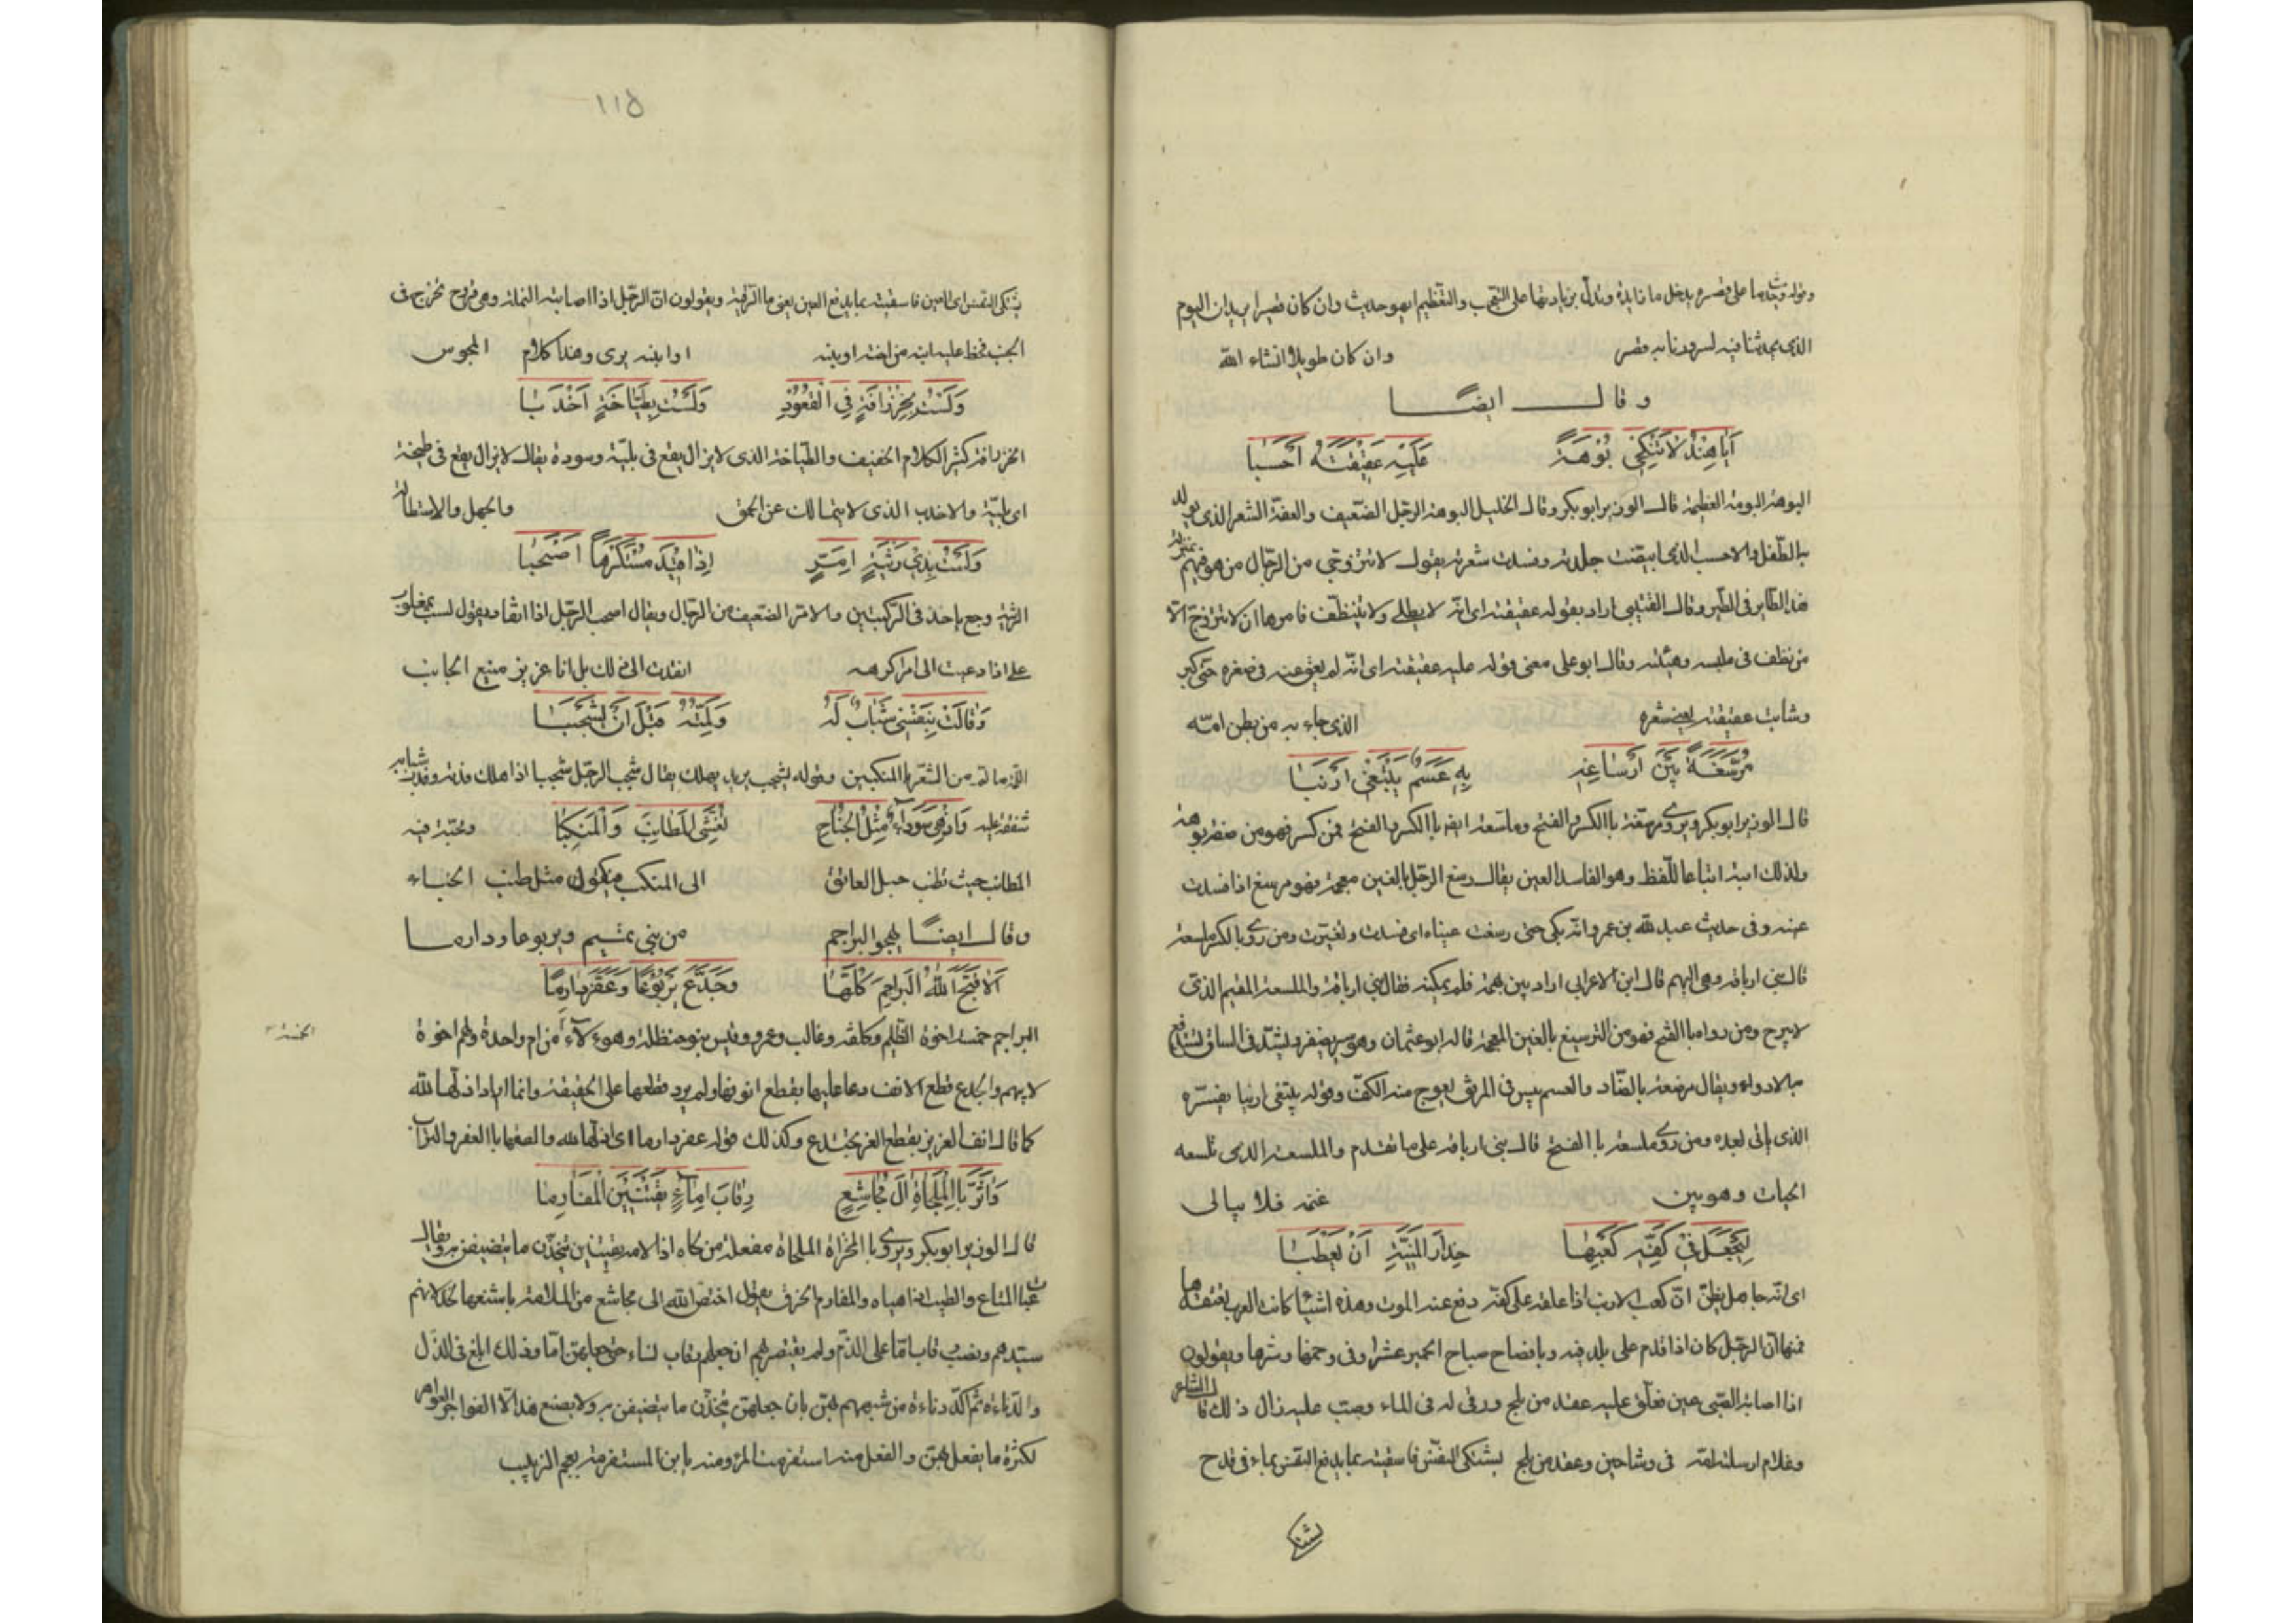 وقوله وحديث ما على قصره يدخل ما زايدة ويدل بزيادتها على التعجب والتعظيم اي هو حديث وان كان قصيرا يريد ان اليوم
الذي يحدثنا فيه لسرورنا به قصر وان كان طويلا انشاء الله
وقال ايضا
أَيَا هِنْدُ لَا تَنْكِحِي بُوهَةً عَلَيْهِ عَقِيقَتُهُ أَحْسَبَا
البوهة البومة العظيمة قال الوزير ابو بكر وقال الخليل البوهة الرجل الضعيف والعقة الشعر الذي يولد
به الطفل والاحسب الذي ابيضت جلدته وفسدت شعرته يقول لا تتزوجي من الرجال من هو فيهم بمنزلة
هذا الطاير في الطير وقال القتيبي اراد بقوله عقيقته اي انه لا يطلي ولا يتنظف فامرها ان لا تتزوج الا
من نظف في ملبسه وهيئته وقال ابو علي معنى قوله عليه عقيقته اي انه لم يعق عنه في صغره حتى كبر
وشابت عقيقته يعني شعره الذي جاء به من بطن امه
مُرَسَّعَةٌ بَيْنَ أَرْسَاغِهِ بِهِ عَسَمٌ يَبْتَغِي أَرْنَبَا
قال الوزير ابو بكر ويروى مرسعة بالكسر والفتح وملسعة ايضا بالكسر والفتح فمن كسر فهو من صفة بوهة
ولذلك انثه اتباعا للفظ وهو الفاسد العين يقال رسغ الرجل بالغين معجمة فهو مرسغ اذا فسدت
عينه وفي حديث عبد الله بن عمرو انه بكى حتى رسغت عيناه اي فسدت وتغيرت ومن روى بالكسر ملسعة
قال بني ارباقه وهي البهم قال ابن الاعرابي اراد بين بهمه فلم يمكنه فقال بني ارباقه والملسعة المقيم الذي
لا يبرح ومن رواه بالفتح فهو من الترسيغ بالغين المعجمة قاله ابو عثمان وهو سير يضفر ويشد في الساق لتدفع
به الادواء ويقال مرصعة بالصاد والعسم يبس في المرفق يعوج منه الكف وقوله يبتغي ارنبا يفسره
الذي ياتي بعده ومن روى ملسعة بالفتح قال بني ارباقه على ما تقدم والملسعة الذي تلسعه
الحيات وهو بين غنمه فلا يبالي
لِيَجْعَلَ فِي كَفِّهِ كَعْبَهَا حِذَارَ الْمَنِيَّةِ أَنْ يَعْطَبَا
اي انه جاهل يظن ان كعب الارنب اذا علقه على كفه دفع عنه الموت وهذه اشيا كانت العرب تعتقدها
فمنها ان الرجل كان اذا قدم على بلد فيه وبا فصاح صياح الحمير عشرا وفي وخمها وشرها ويقولون
اذا اصابت الصبي عين فعلق عليه عقد من بلح ورقي له في الماء وصب عليه زال ذلك قال الشاعر
وغلام ارسلته امه في وشاحين وعقد من بلح يشتكي النفس فاسقيته بما يدفع النفس بماء في قدح
يشتكي
١١٥
يشتكي النفس اي العين فاسقيته بما يدفع العين يعني ما الرقية ويقولون ان الرجل اذا اصابته النملة وهي قروح تخرج في
الجنب فخط عليه ابنه من اخته او بنته او ابنه يبرى وهذا كلام المجوس
وَلَسْتُ بِخِزْرَافَةٍ فِي الْقُعُودِ وَلَسْتُ بِطَيَّاخَةٍ أَخْدَبَا
الخزرافة كثير الكلام الخفيف والطياخة الذي لا يزال يقع في بلية وسوءة يقال لا يزال يقع في طيخة
اي بلية والاخدب الذي لا يتمالك عن الحمق والجهل والاستطالة
وَلَسْتُ بِذِي رَثْيَةٍ إِمَّرٍ إِذَا قِيدَ مُسْتَكْرَهًا أَصْحَبَا
الرثية وجع ياخذ في الركبتين والامر الضعيف من الرجال ويقال اصحب الرجل اذا انقاد يقول لست بمغلوب
علي اذا دعيت الى امر اكرهه انقدت الى ذلك بل انا عزيز منيع الجانب
وَقَالَتْ بِنَفْسِي شَبَابٌ لَهُ وَلِمَّتُهُ قَبْلَ أَنْ يَشْجَبَا
اللمة ما لم من الشعر بالمنكبين وقوله يشجب يريد يهلك يقال شجب الرجل شجبا اذا هلك فدته وفدت شبابه
شفقة عليه وَإِذْ هِيَ سَوْدَاءُ مِثْلُ الْجَنَاحِ تُغَشِّي الْمَطَانِبَ وَالْمَنْكِبَا ومحبة فيه
المطانب حيث تطنب حبل العاتق الى المنكب فيكون مثل طنب الخباء
وقال ايضا يهجو البراجم من بني تميم ويربوعا ودارما
أَلَا قَبَّحَ اللهُ الْبَرَاجِمَ كُلَّهَا وَجَدَّعَ يَرْبُوعًا وَعَفَّرَ دَارِمًا
البراجم خمسة اخوة الظليم وكلفة وغالب وعمرو وقيس بنو حنظلة وهولاء من ام واحدة ولهم اخوة
لابيهم والجدع قطع الانف دعا عليها بقطع انوفها ولم يرد قطعها على الحقيقة وانما اراد اذلها الله
كما قال انف العزيز بقطع العز يجتدع وكذلك قوله عفر دارما اي اذلها الله والصقها بالعفر والتراب
وَآثَرَ بِالْمِلْحَاةِ آلَ مُجَاشِعٍ رِقَابَ إِمَاءٍ يَقْتَنِينَ الْمَفَارِمَا
قال الوزير ابو بكر ويروى بالمخزاة الملحاة مفعلة من لحاه اذا لامه يقتنين يتخذن ما يتضيقن به ويقال
عبا المتاع والطيب اذا هياه والمفارم الخرق يقول اختص الله الى مجاشع من الملامة باشنعها لخذلانهم
سيدهم ونصب رقاب اما على الذم ولم يقتصر بهم ان جعلهم رقاب نساء حتى جعلهن اما وذلك ابلغ في الذل
والدناءة ثم اكد دناءة من شبههم بهن بان جعلهن يتخذن ما يتضيقن به ولا يصنع هذا الا الفواجر العواهر
لكثرة ما يفعل بهن والفعل منه استفرمت المرءة ومنه يا ابن المستفرمة بعجم الزبيب